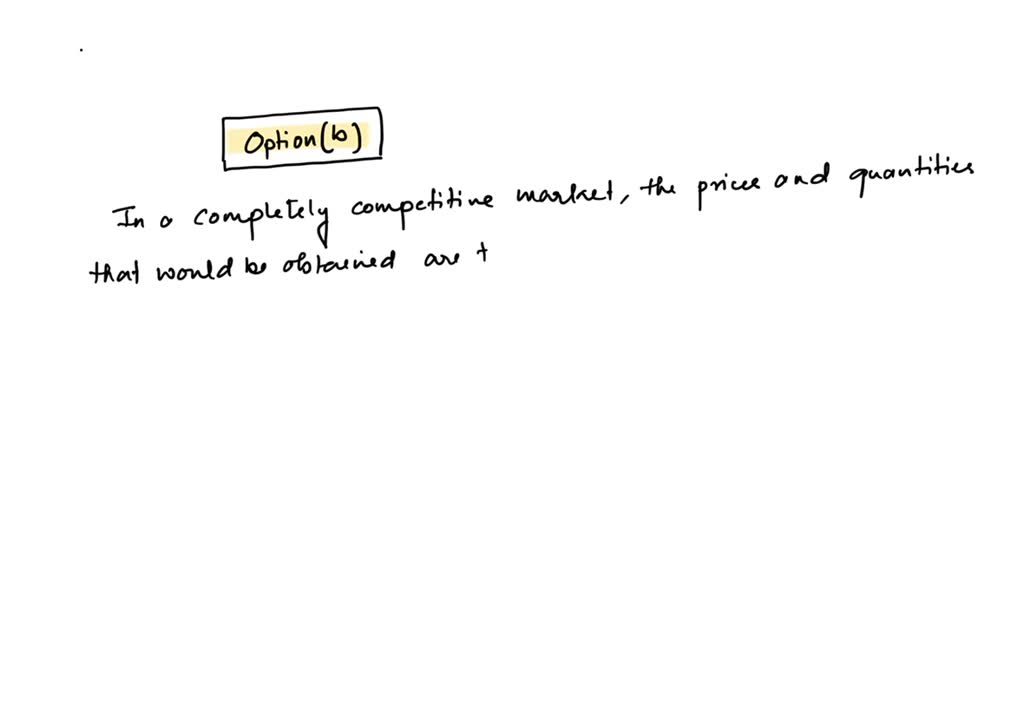 Option(b)
In a completely competitive market, the prices and quantities
that would be obtained are t